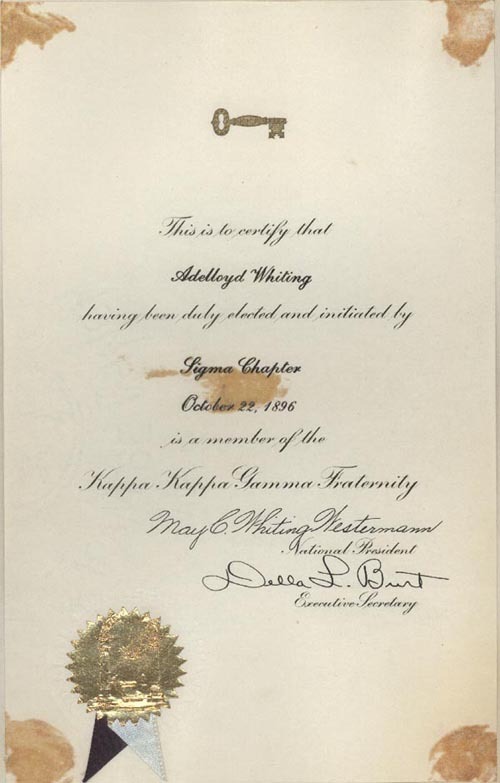 This is to certify that
Adelloyd Whiting
having been duly elected and initiated by
Sigma Chapter
October 22, 1896
is a member of the
Kappa Kappa Gamma Fraternity
May C. Whiting Westermann
National President
Della L. Burt
Executive Secretary